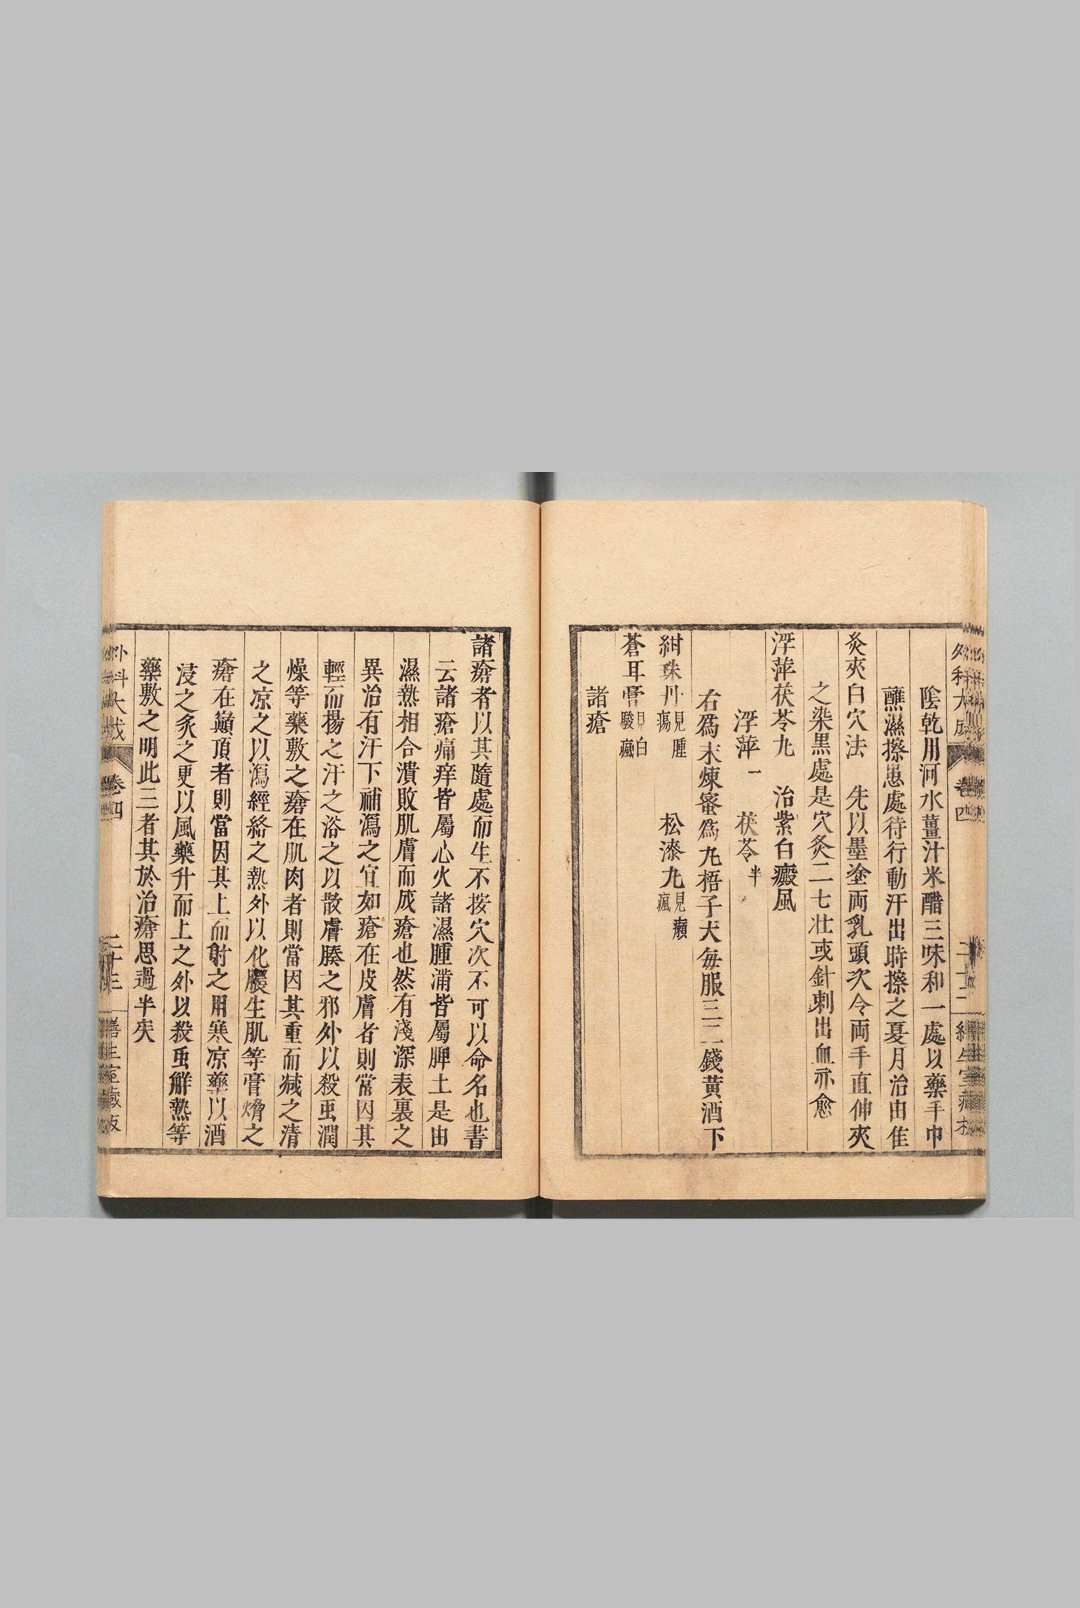 陰乾用河水薑汁米醋三味和一處以藥手巾
蘸濕擦患處待行動汗出時擦之夏月治由佳
灸夾白穴法　先以墨塗両乳頭次令両手直伸夾
之染黑處是穴灸二七壮或針刺出血亦愈
浮萍茯苓九　治紫白癜風
浮萍一　茯苓半
右爲末煉蜜爲九梧子大每服三二錢黄酒下
紺珠川見腫瘍　松漆九見癩瘋
蒼耳膏見白駁癜
諸瘡
外科大成　卷四
諸瘡者以其隨處而生不按穴次不可以命名也書
云諸瘡痛痒皆屬心火諸濕腫滿皆屬脾土是由
濕熱相合潰敗肌膚而成瘡也然有淺深表裏之
異治有汗下補瀉之宜如瘡在皮膚者則當因其
輕而揚之汗之浴之以散膚腠之邪外以殺虫潤
燥等藥敷之瘡在肌肉者則當因其重而減之清
之凉之以瀉經絡之熱外以化膿生肌等膏𤎅之
瘡在巔頂者則當因其上而射之用寒凉藥以酒
浸之炙之更以風藥升而上之外以殺虫解熱等
藥敷之明此三者其於治瘡思過半矣
外科大成　卷四　二十三